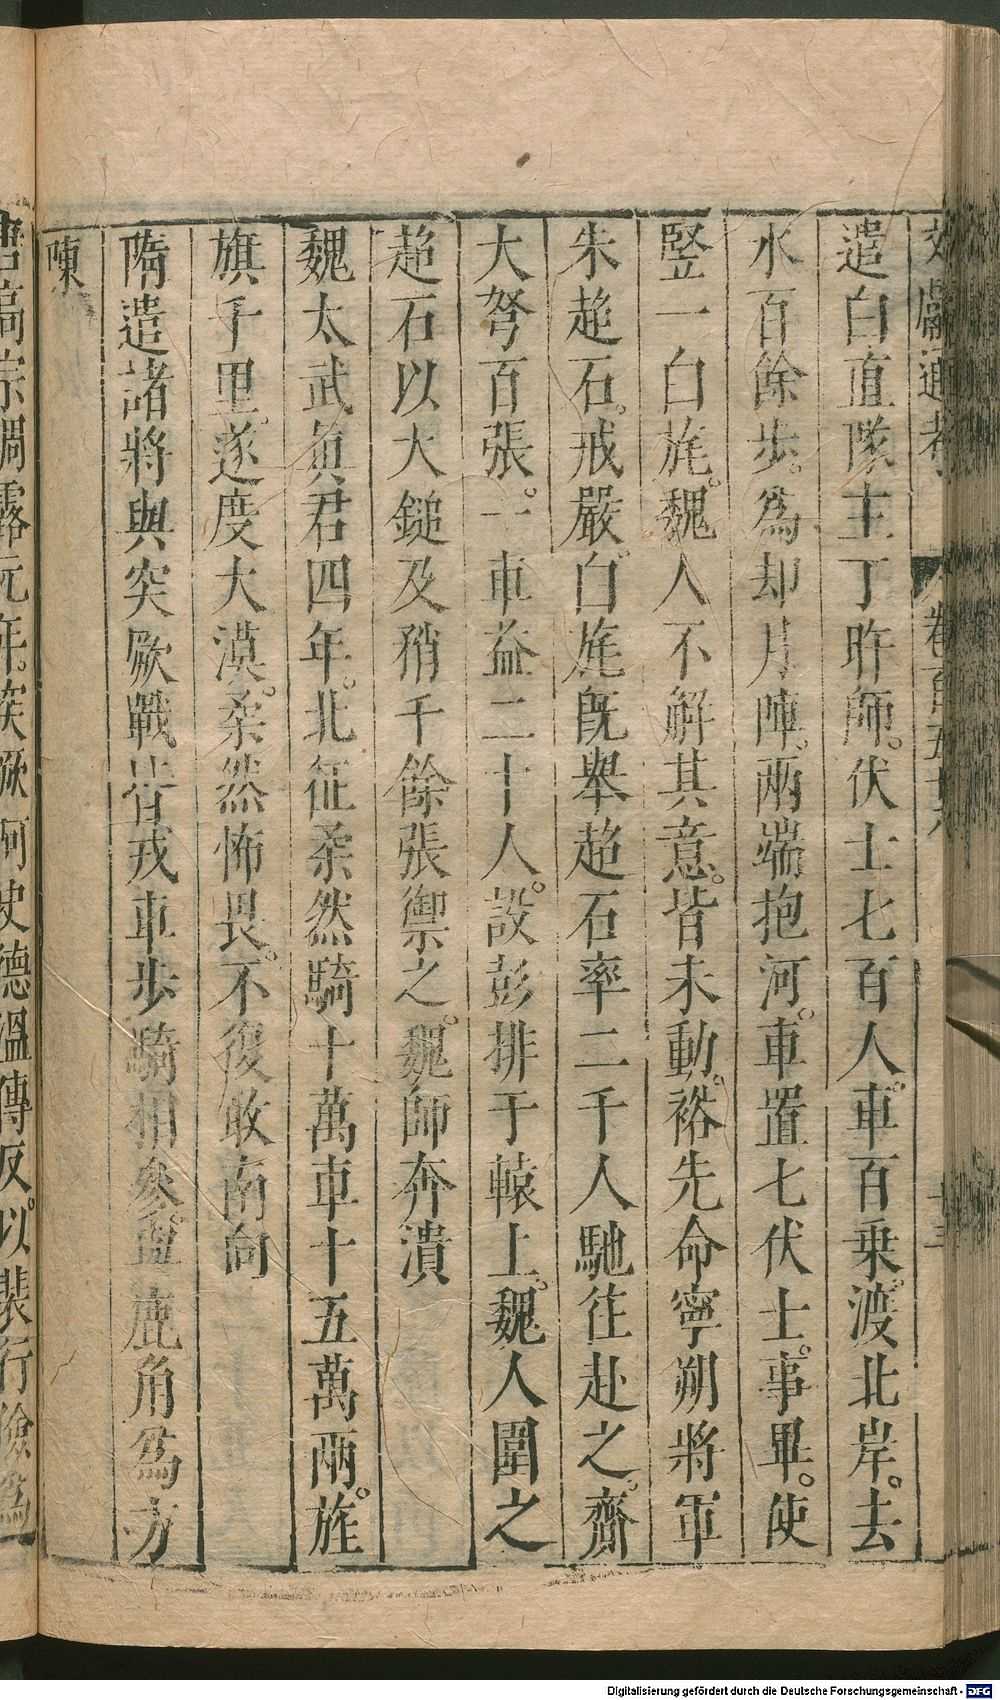 文獻通考 卷百五十八 十三
遣白直隊主丁旿師。伏士七百人。車百乗。渡北岸。去
水百餘歩。爲却月陣。兩端抱河。車置七伏士。事畢。使
竪一白旄。魏人不解其意。皆未動。裕先命寧朔將軍
朱超石。戒嚴。白旄旣舉超石率二千人馳往赴之。齎
大弩百張。一車益二十人。設彭排于轅上。魏人圍之
超石以大鎚及矟千餘張禦之。魏師奔潰
魏太武眞君四年。北征柔然騎十萬車十五萬兩。旌
旗千里。遂度大漠。柔然怖畏。不復敢南向
隋遣諸將與突厥戰皆戎車歩騎相參。鹿角爲方
陳
唐高宗調露元年。突厥阿史德溫傅反。以裴行儉爲
Digitalisierung gefördert durch die Deutsche Forschungsgemeinschaft - DFG